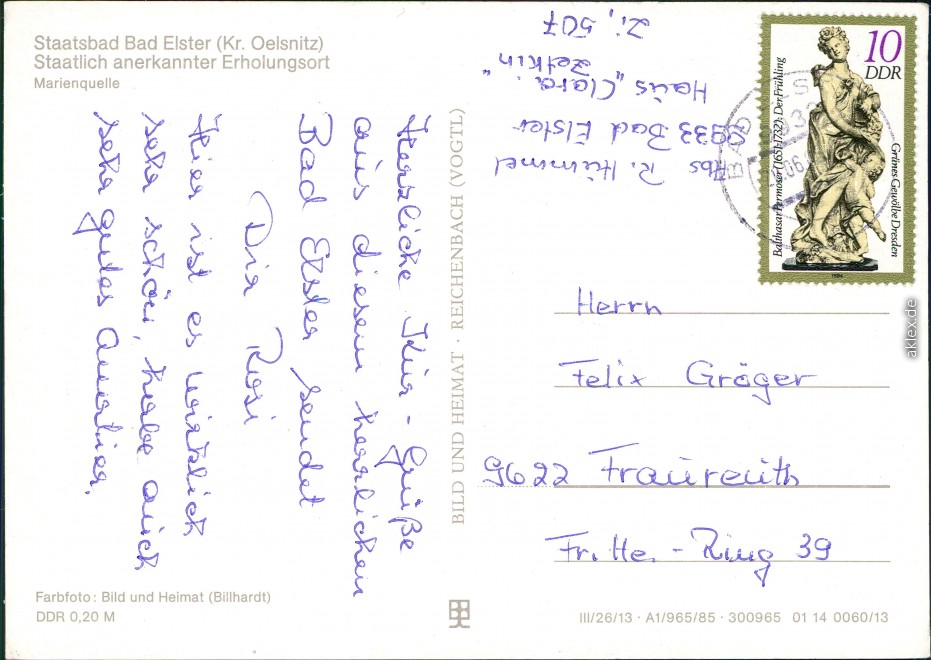 Staatsbad Bad Elster (Kr. Oelsnitz)
Staatlich anerkannter Erholungsort
Marienquelle
Herzliche Kur-Grüße
aus diesem herrlichen
Bad Elster sendet
Dir Rosi
Hier ist es wirklich
sehr schön, habe auch
sehr gutes Quartier.
Farbfoto: Bild und Heimat (Billhardt)
DDR 0,20 M
BILD UND HEIMAT · REICHENBACH (VOGTL)
Abs R. Hümmel
9933 Bad Elster
Haus „Clara
Zetkin"
Zi, 507
10
DDR
Balthasar Permoser (1651-1732): Der Frühling
Grünes Gewölbe Dresden
1984
BAD ELS
Herrn
Felix Gröger
9622 Fraureuth
Fr. - Ring 39
III/26/13 · A1/965/85 · 300965 01 14 0060/13
aklex.de